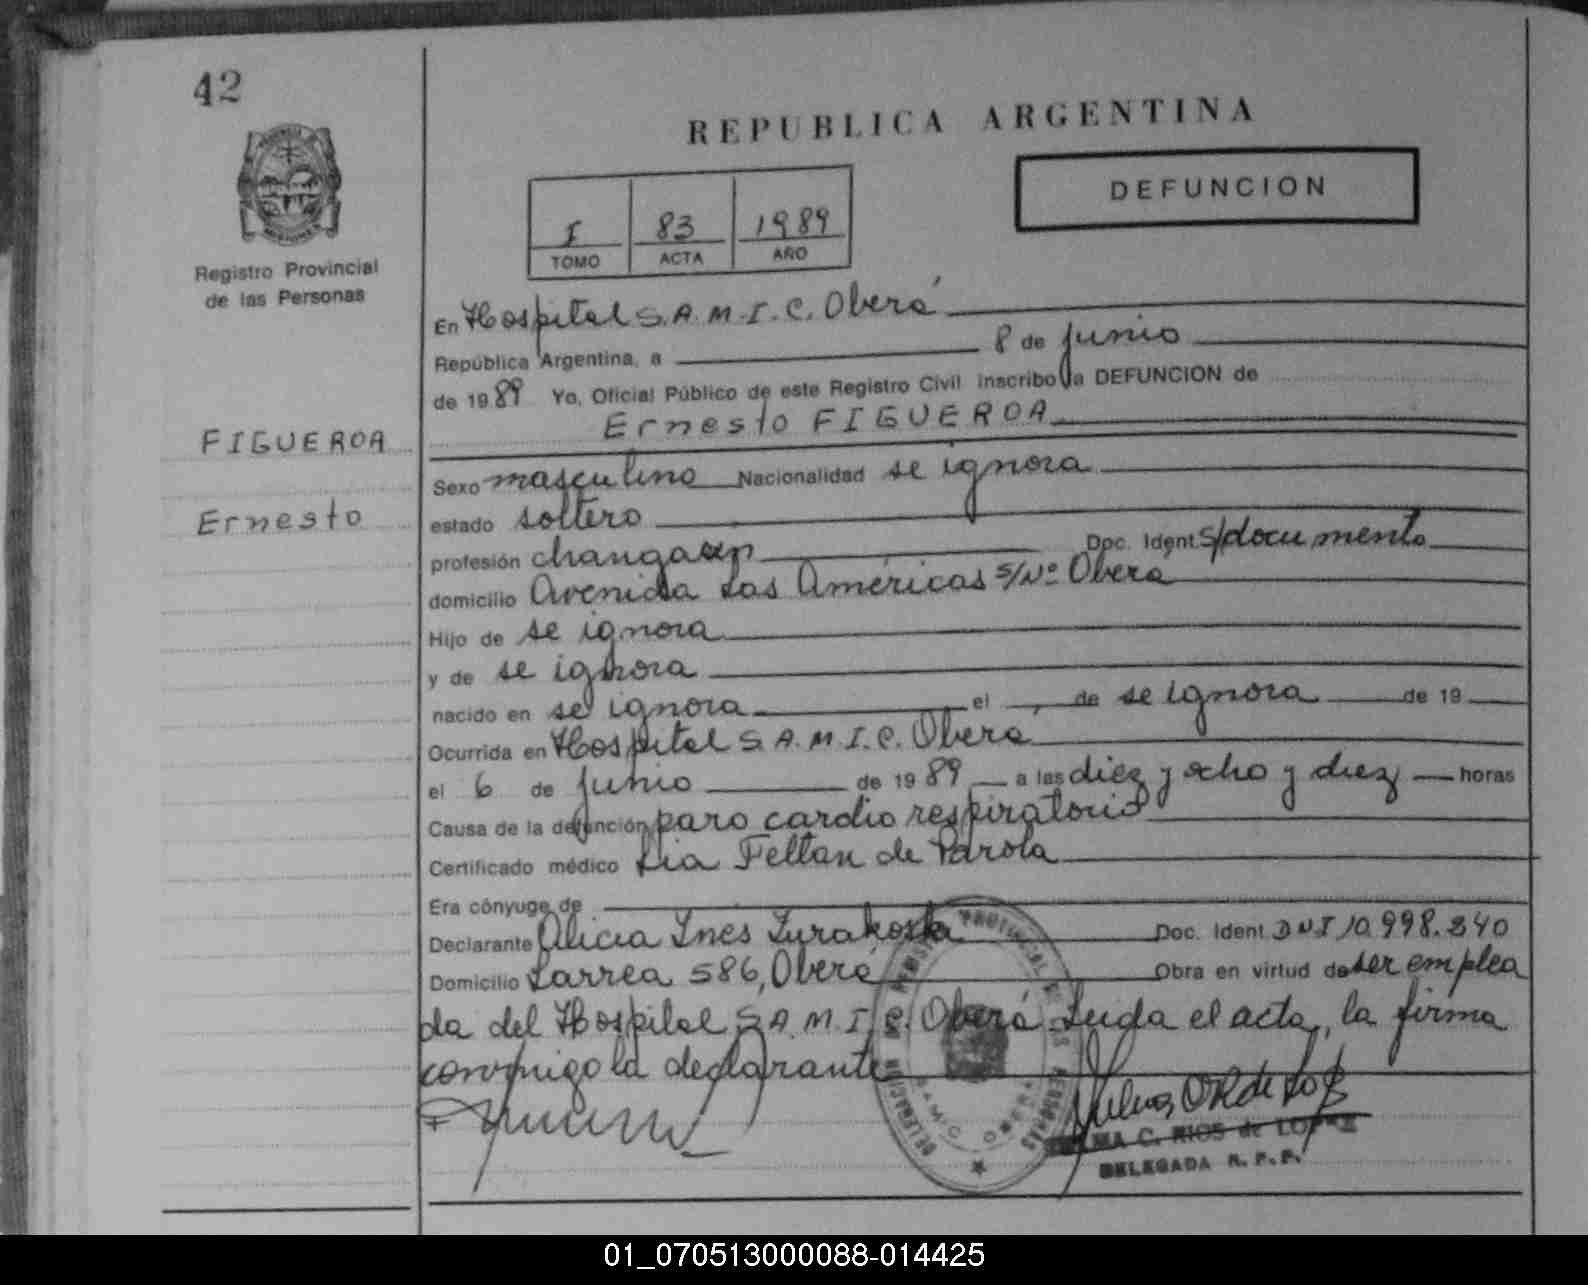 42
REPUBLICA ARGENTINA
DEFUNCION
I 83 1989
TOMO ACTA AÑO
Registro Provincial
de las Personas
En Hospital S.A.M.I.C. Oberá
República Argentina, a 8 de junio
de 1989 Yo, Oficial Público de este Registro Civil inscribo la DEFUNCION de
Ernesto FIGUEROA
FIGUEROA
Ernesto
Sexo masculino Nacionalidad se ignora
estado soltero
profesión Doc. Ident. s/documento
domicilio Avenida Las Américas s/Nº Oberá
Hijo de se ignora
y de se ignora
nacido en se ignora el de se ignora de 19
Ocurrida en Hospital S.A.M.I.C. Oberá
el 6 de junio de 1989 a las diez y ocho y diez horas
Causa de la defunción paro cardio respiratorio
Certificado médico Lia Feltan de Parola
Era cónyuge de
Declarante Alicia Ines Doc. Ident. DNI 10.998.240
Domicilio Larrea 586, Oberá Obra en virtud de ser emplea
da del Hospital S.A.M.I.C. Oberá Leída el acta, la firma
conmigo la declarante
C. RIOS de LOPEZ
DELEGADA R. P. P.
01_070513000088-014425